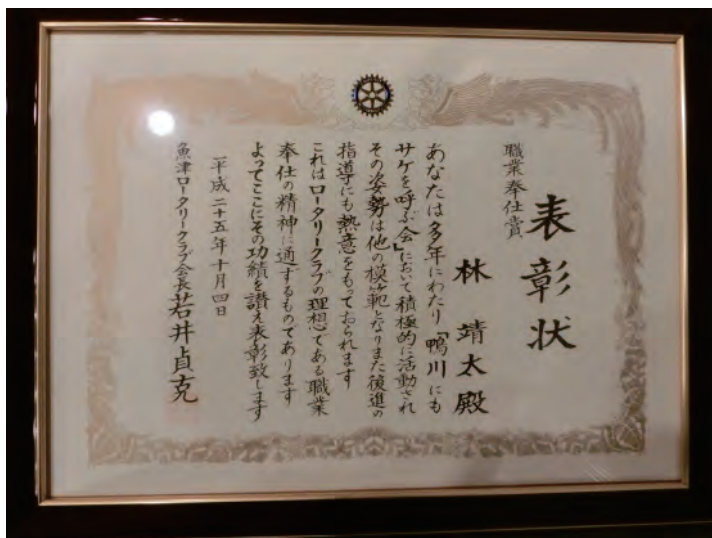 表彰状
職業奉仕賞
林靖太殿
あなたは多年にわたり「鴨川にも
サケを呼ぶ会」において積極的に活動され
その姿勢は他の模範となりまた後進の
指導にも熱意をもっておられます
これはロータリークラブの理想である職業
奉仕の精神に通ずるものであります
よってここにその功績を讃え表彰致します
平成二十五年十月四日
魚津ロータリークラブ会長若井貞克